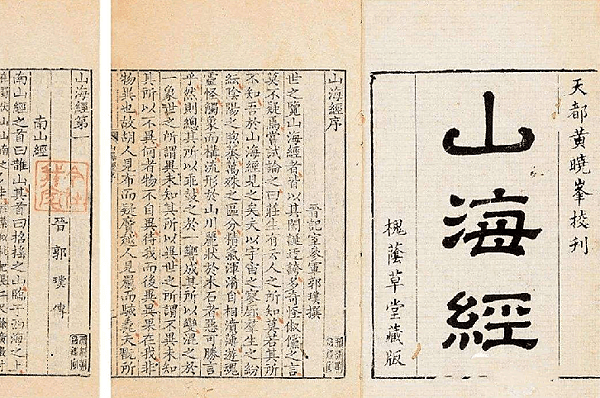 天都黄曉峯校刊
山海經
槐蔭草堂藏版
山海經序
晉記室參軍郭璞撰
世之覽山海經者皆以其閎誕迂誇多奇怪俶儻之言
莫不疑焉嘗試論之曰莊生有云人之所知莫若其所
不知吾於山海經見之矣夫以宇宙之寥廓羣生之紛
紜陰陽之煦蒸萬殊之區分精氣渾淆自相濆薄遊魂
靈怪觸象而構流形於山川麗狀於木石者惡可勝言
乎然則總其所以乖鼓之於一響成其所以變混之於
一象世之所謂異未知其所以異世之所謂不異未知
其所以不異何者物不自異待我而後異異果在我非
物異也故胡人見布而疑黂越人見罽而駭毳夫翫所
山海經第一
南山經
晉 郭璞傳
南山經之首曰䧿山其首曰招搖之山臨于西海之上